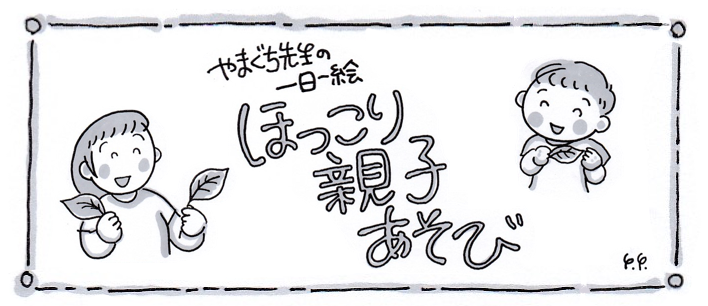 やまぐち先生の
一日一絵
ほっこり
親子
あそび